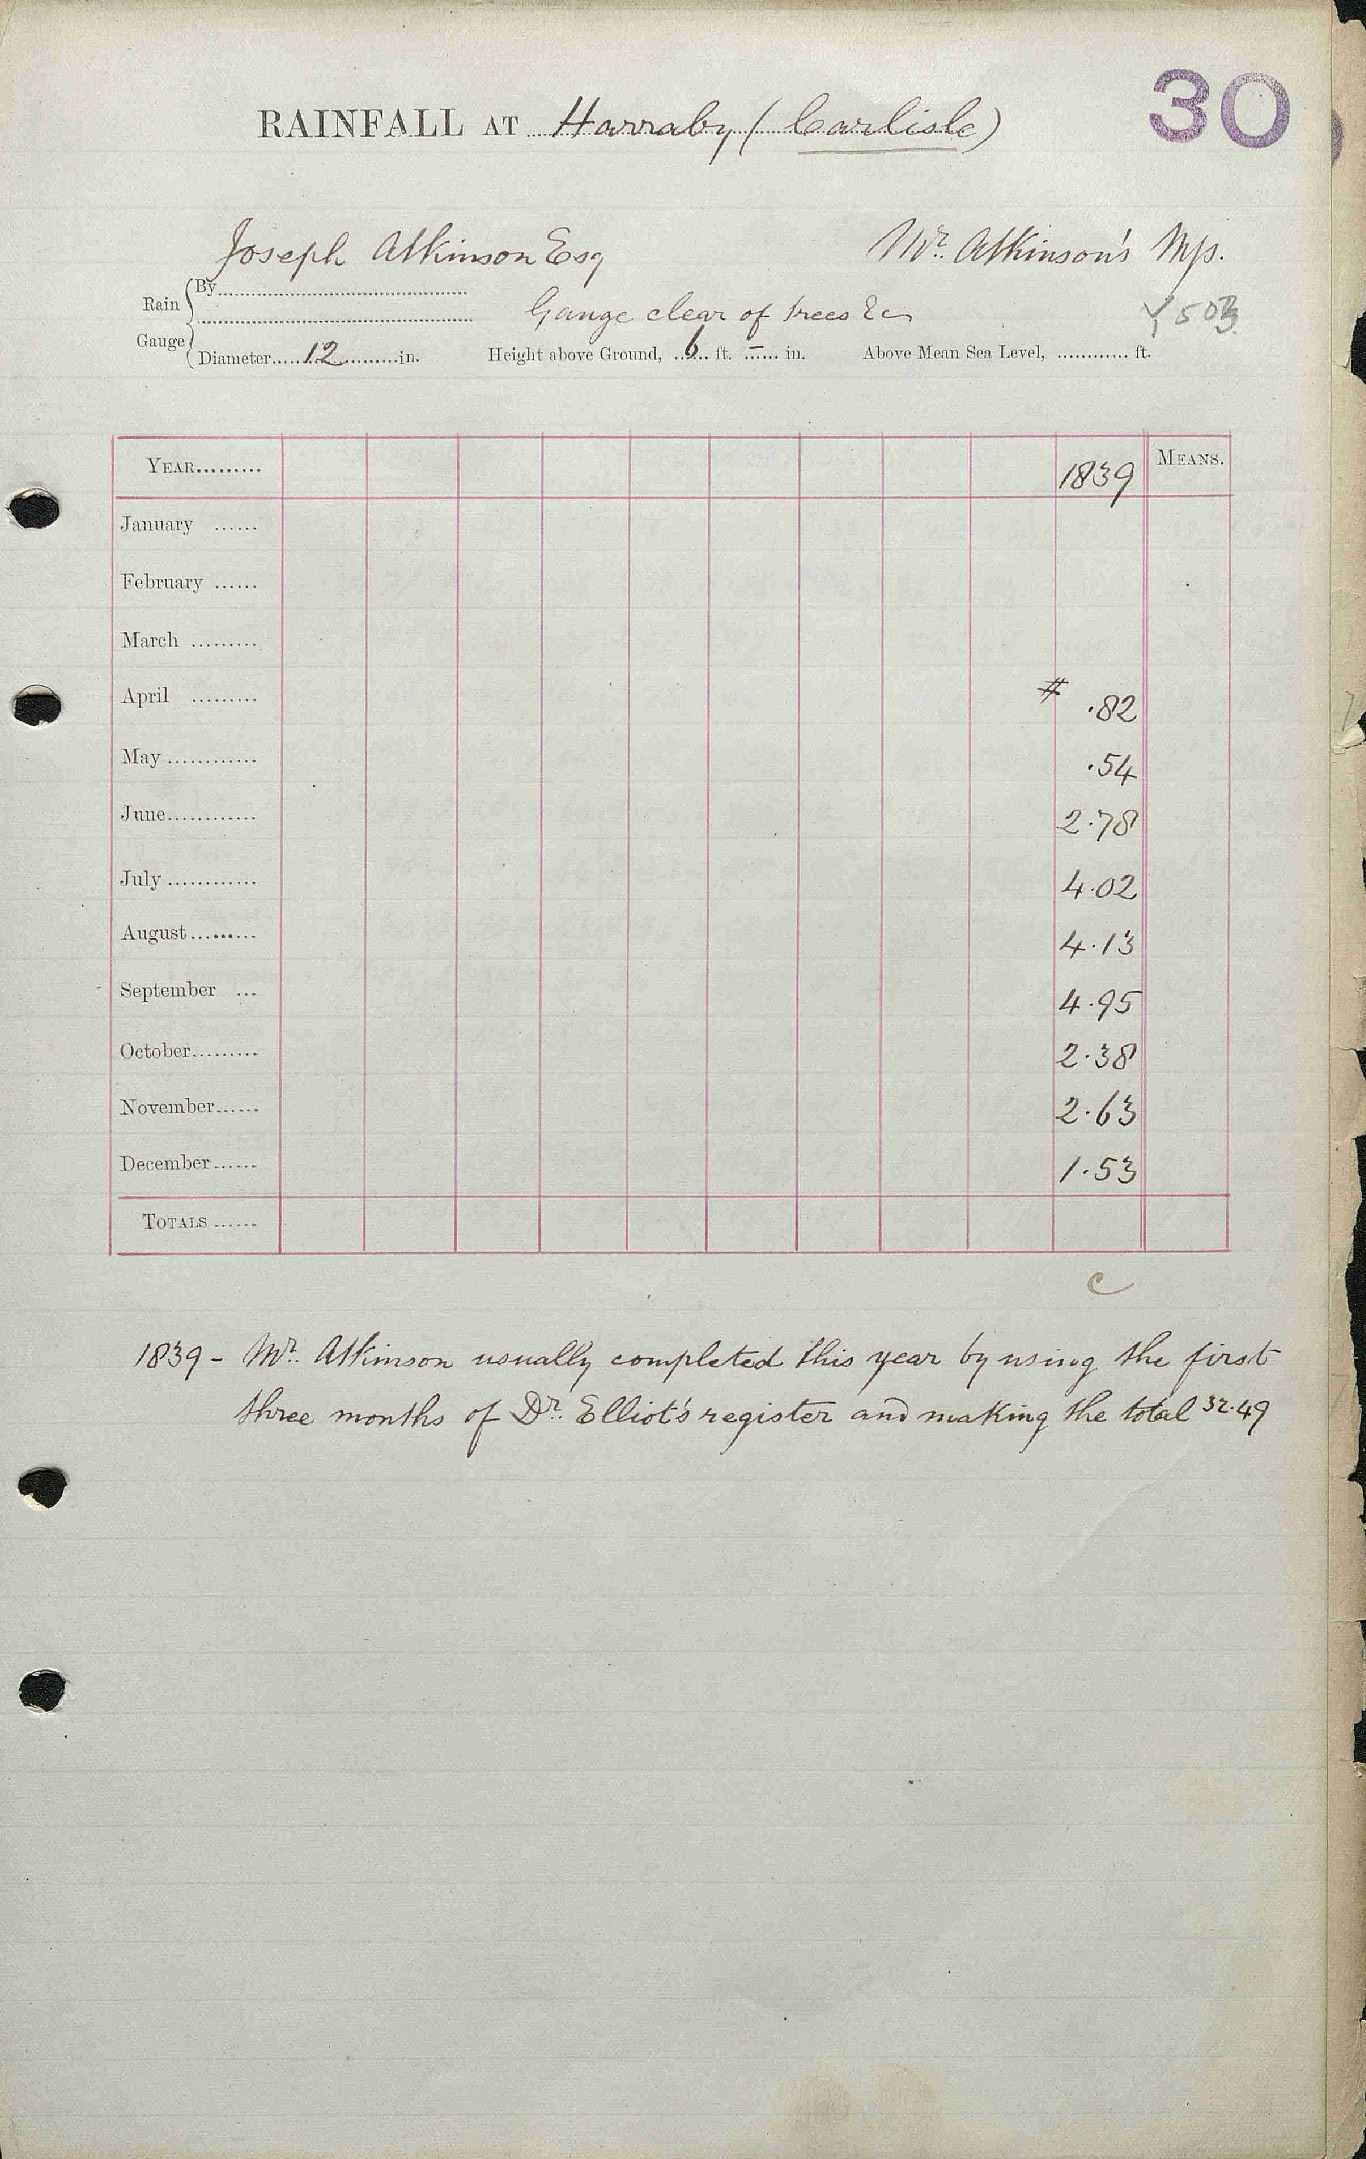 30
RAINFALL AT Harraby (Carlisle)
Joseph Atkinson Esq Mr. Atkinson's Mss.
Rain Gauge { By
Gauge clear of trees &c
Diameter 12 in. Height above Ground, 6 ft. – in. Above Mean Sea Level, ft.
YEAR 1839 MEANS.
January
February
March
April # .82
May .54
June 2.78
July 4.02
August 4.13
September 4.95
October 2.38
November 2.63
December 1.53
TOTALS
C
1839 – Mr. Atkinson usually completed this year by using the first
three months of Dr. Elliot's register and making the total 32.49